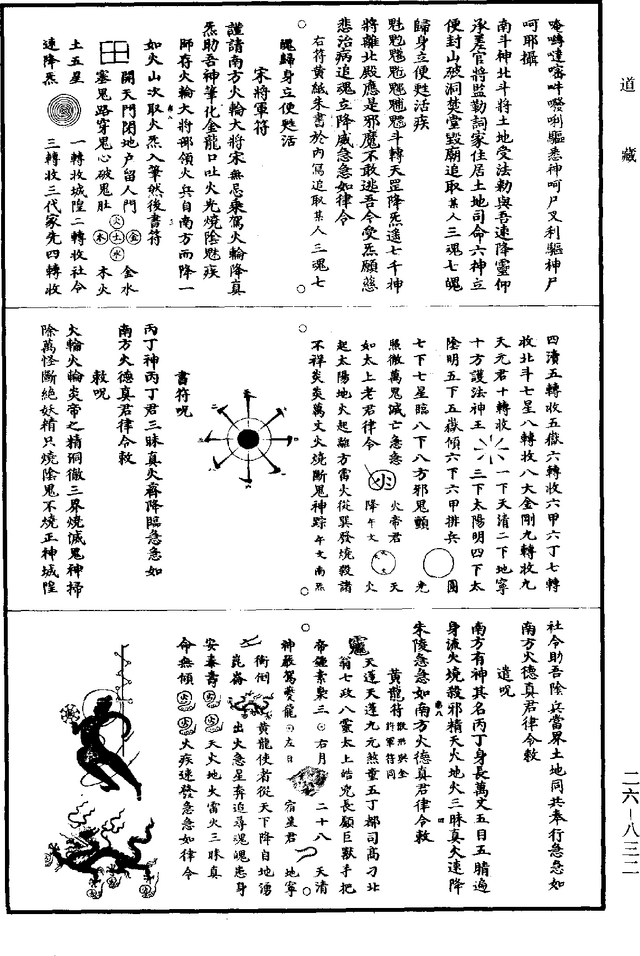 道藏
唵囀噠㗫吽癈唎驅悉神呵尸叉利驅神尸
呵耶攝
南斗神北斗將土地受法勅與吾速降靈仰
承差官將監勤詞家住居土地司命六神立
便封山破洞焚堂毀廟追取某人三魂七魄
歸身立便甦活疾
魁斗轉天罡降炁遥七千神
將離北殿應是邪魔不敢逃吾令受炁願慈
悲治病追魂立降威急急如律令
右符黃紙朱書於內寫追取某人三魂七
魄歸身立便甦活
宋將軍符
謹請南方火輪大將宋無忌乘駕火輪降真
炁助吾神筆化金龍口吐火光燒陰魅疾
師存火輪大將部領火兵自南方而降一
如火山次取火炁入筆然後書符
開天門閉地戶留人門
塞鬼路穿鬼心破鬼肚
火
金土木
水
金水
木火
土五星
速降炁
一轉收城隍二轉收社令
三轉收三代家先四轉收
四瀆五轉收五嶽六轉收六甲六丁七轉
收北斗七星八轉收八大金剛九轉收九
天元君十轉收
十方護法神王
一下天清二下地寧
三下太陽明四下太
陰明五下五嶽傾六下六甲排兵
七下七星臨八下八方邪鬼顫
圓光
照徹萬鬼滅亡急急
如太上老君律令
火
火帝君
降午文
天火
起太陽地火起離方雷火從巽發燒殺諸
不祥炎炎萬丈火燒斷鬼神踪午文南炁
書符呪
丙丁神丙丁君三昧真火齊降臨急急如
南方火德真君律令敕
敕呪
火輪火輪炎帝之精洞徹三界燒滅鬼神掃
除萬怪斷絕妖精只燒陰鬼不燒正神城隍
社令助吾陰兵當界土地同共奉行急急如
南方火德真君律令敕
遣呪
南方有神其名丙丁身長萬丈五目五睛遍
身流火燒殺邪精天火地火三昧真火速降
朱陵急急如南方火德真君律令敕
黃龍符
散形與金
許軍符同
天蓬天蓬九元煞童五丁都司高刁北
翁七政八靈太上皓兇長顱巨獸手把
帝鐘素梟三
右月
二十八
天清
神嚴駕夔龍
左日
宿星君
地寧
衝徊
崑崙
黃龍使者從天下降自地湧
出火急星奔追尋魂魄患身
安泰壽
命無傾
天火地火雷火三昧真
火疾速發急急如律令
二六—八三二